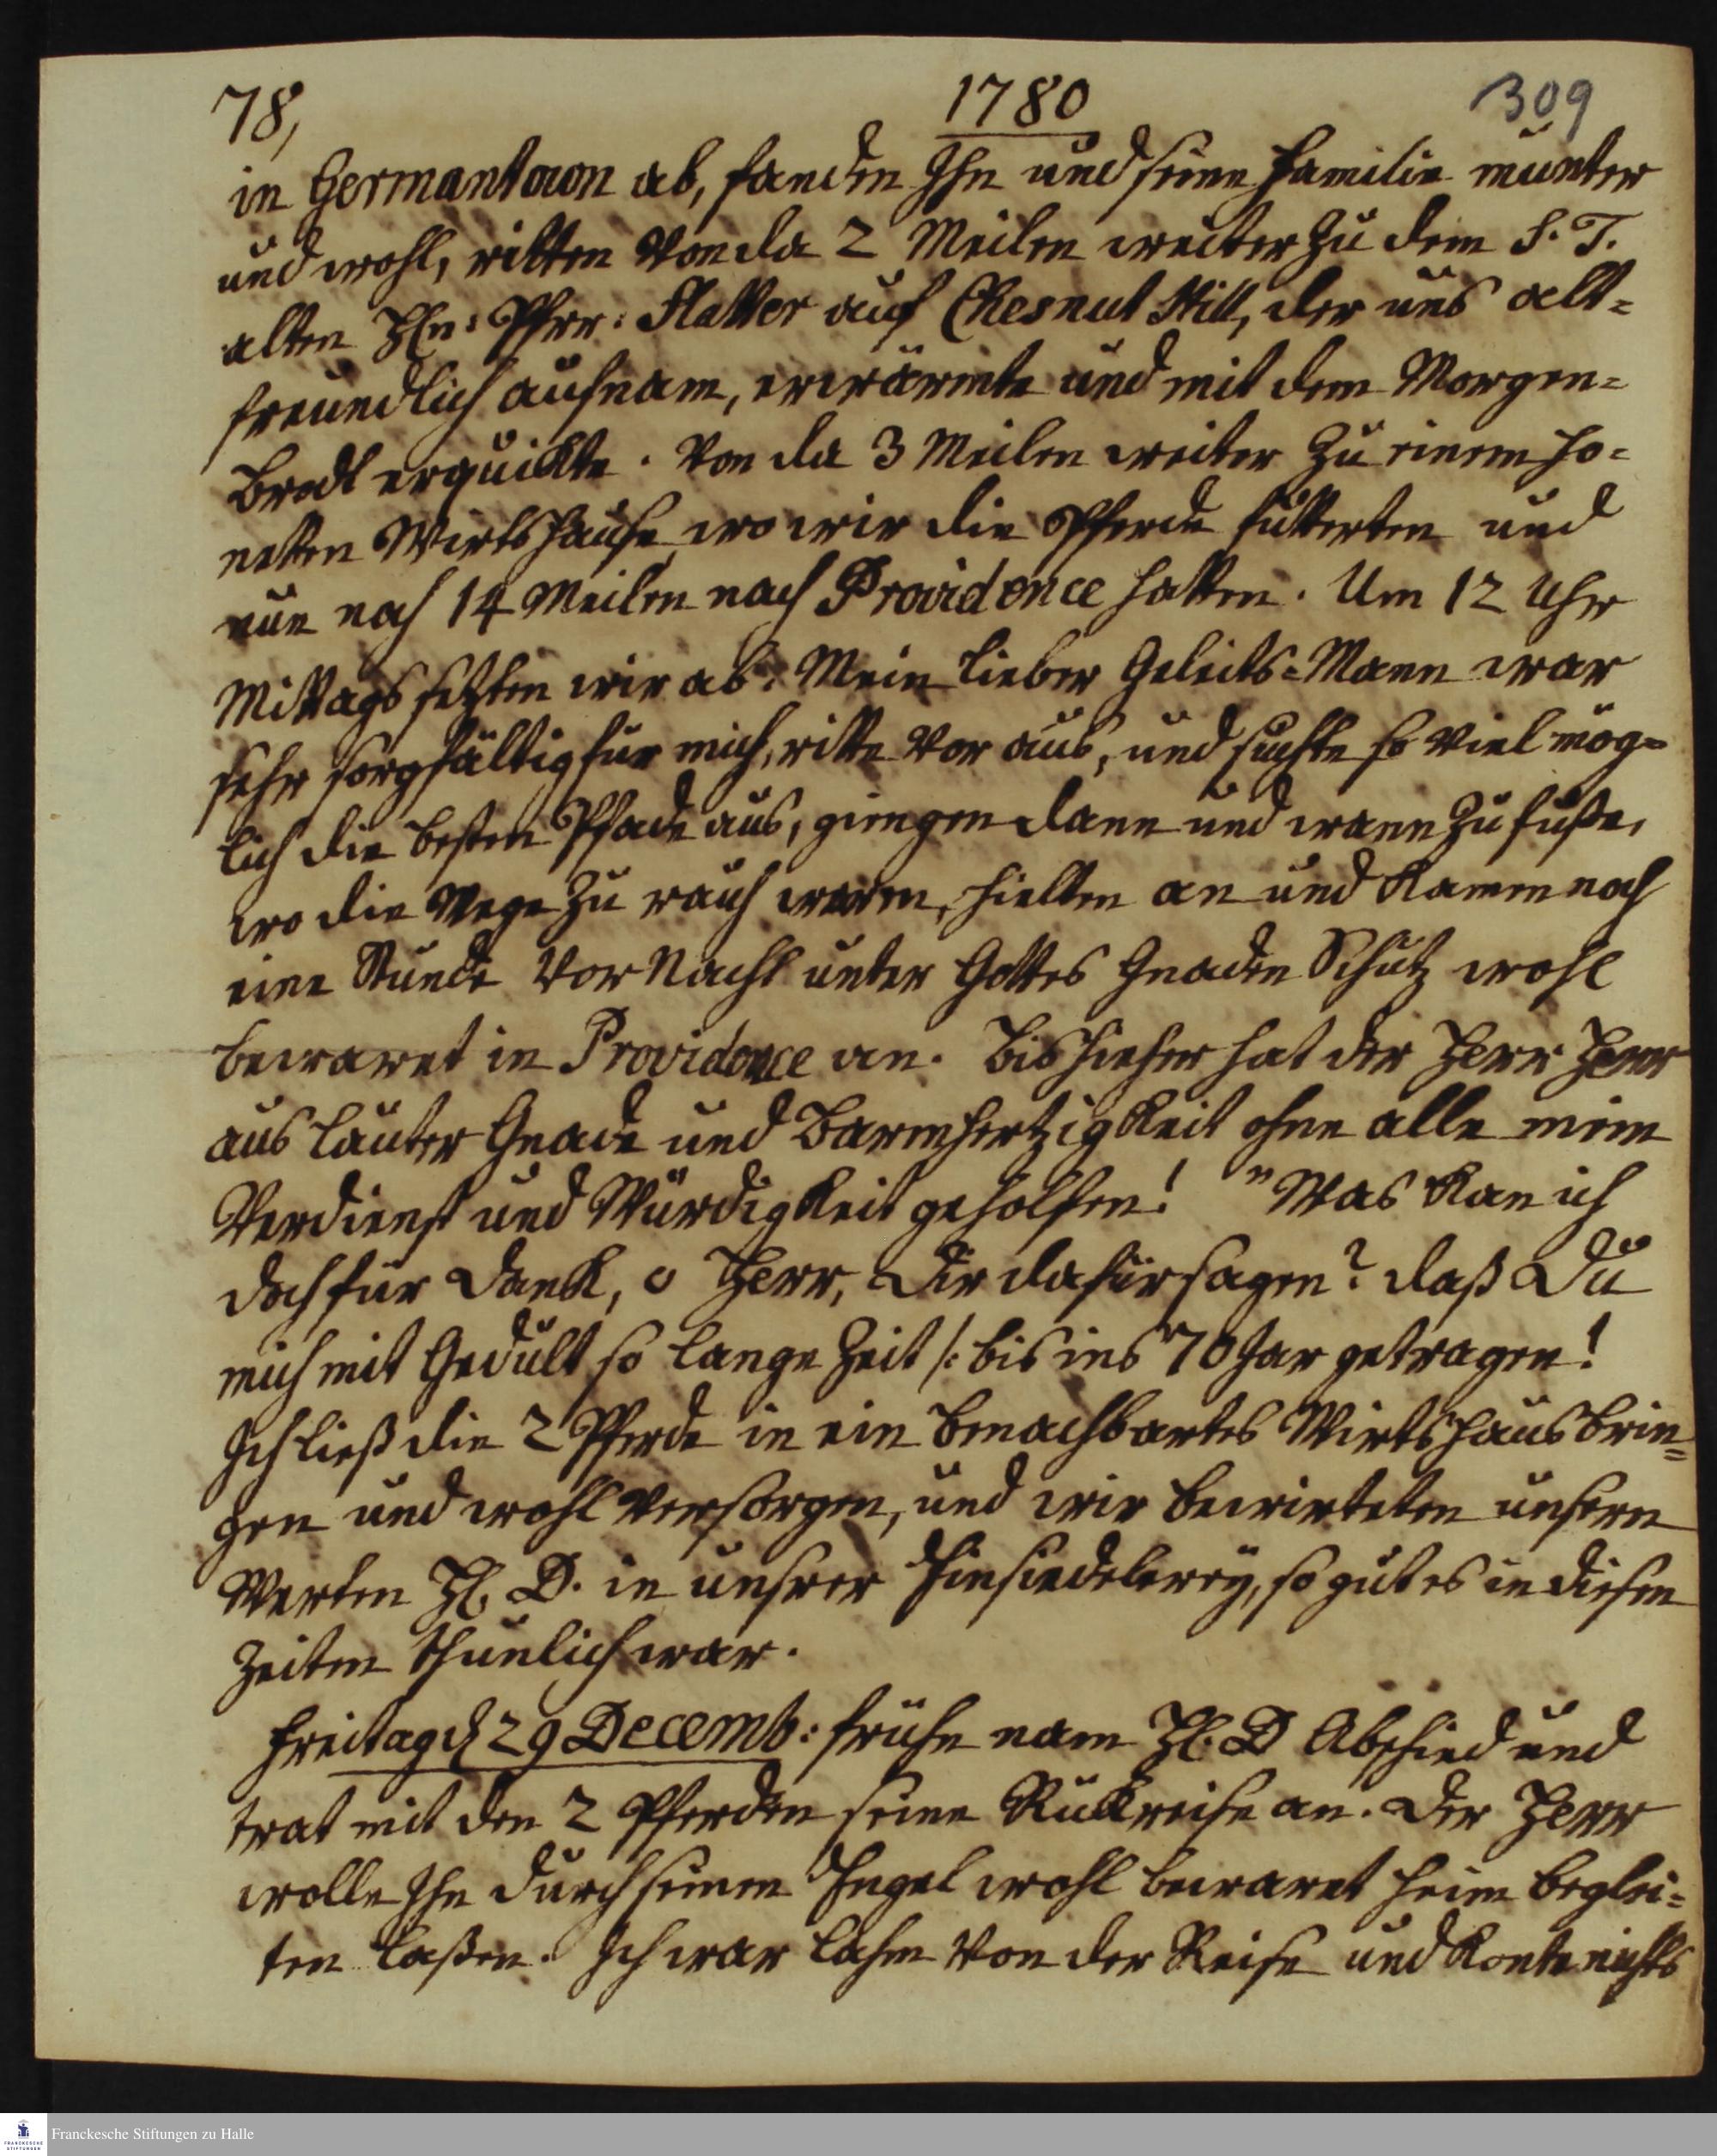 78,
1780
309
in Germantown ab, fanden Ihn und seine Familie munter
und wohl, ritten von da 2 Meilen weiter zu dem S. T.
alten HEn: Pfrr: Slatter auf Chesnut Hill, der uns alt-
freundlich aufnam, erwärmte und mit dem Morgen-
Brodt erquikte. Von da 3 Meilen weiter zu einem ho-
netten Wirtshause, wo wir die Pferde fütterten und
nun noch 14 Meilen nach Providence hatten. Um 12 Uhr
Mittags setzten wir ab. Mein lieber Geleits-Mann war
sehr sorgfältig für mich, ritte vor aus, und suchte so viel mög-
lich die besten Pfade aus, giengen dann und wann zu fuße,
wo die Wege zu rauh waren, hielten an und kamen noch
eine Stunde vor Nacht unter Gottes Gnaden Schutz wohl
bewaret in Providence an. Bishieher hat der Herr Herr
aus lauter Gnade und Barmhertzigkeit ohne alle mein
Verdienst und Würdigkeit geholfen! "Was kan ich
doch für Dank, o Herr, Dir dafür sagen? daß Du
mich mit Gedult so lange Zeit /: bis ins 70 Jar getragen!
Ich ließ die 2 Pferde in ein benachbartes Wirtshaus brin-
gen und wohl versorgen, und wir bewirteten unsern
Werten HE. D. in unsrer Einsiedelerey, so gut es in diesen
Zeiten thunlich war.
Freitag d 29 Decemb: frühe nam HE. D Abschied und
trat mit den 2 Pferden seine Rükreise an. Der Herr
wolle Ihn durch seinen Engel wohl bewaret heim beglei-
ten laßen. Ich war lahm von der Reise und konte nichts
Franckesche Stiftungen zu Halle